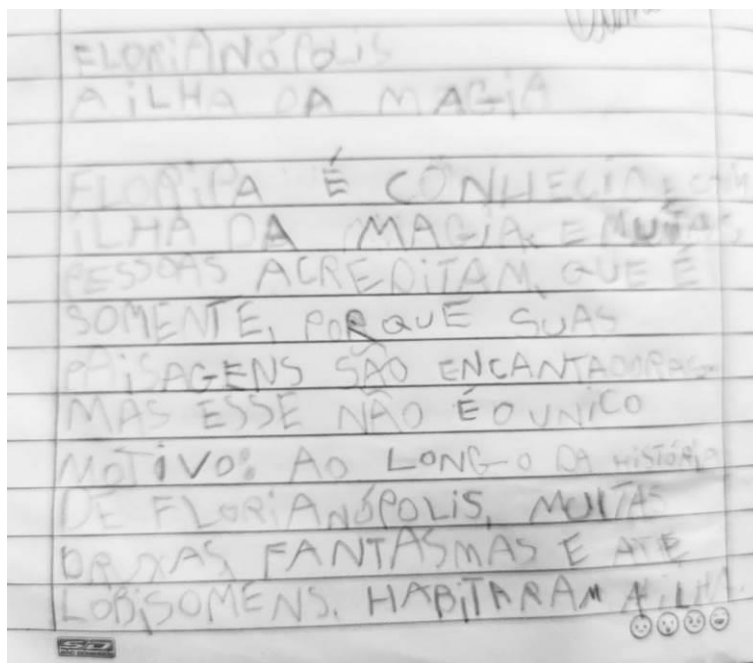 FLORIANÓPOLIS
A ILHA DA MAGIA
FLORIPA É CONHECIDA COM
ILHA DA MAGIA. E MUITAS
PESSOAS ACREDITAM, QUE É
SOMENTE, PORQUE SUAS
PAISAGENS SÃO ENCANTADORAS.
MAS ESSE NÃO É O UNICO
MOTIVO: AO LONGO DA HISTÓRIA
DE FLORIANÓPOLIS, MUITAS
BRUXAS, FANTASMAS E ATÉ
LOBISOMENS. HABITARAM A ILHA.